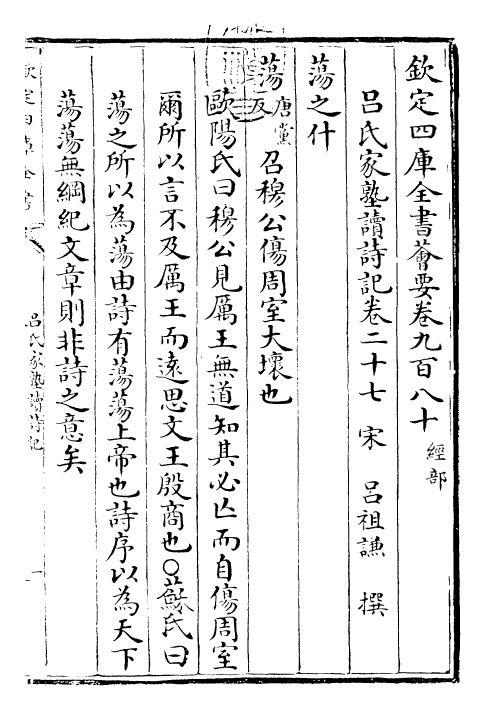 欽定四庫全書薈要卷九百八十 經部
呂氏家塾讀詩記卷二十七 宋 呂祖謙 撰
蕩之什
蕩唐黨反 召穆公傷周室大壞也
歐陽氏曰穆公見厲王無道知其必亡而自傷周室
爾所以言不及厲王而遠思文王殷商也○蘇氏曰
蕩之所以為蕩由詩有蕩蕩上帝也詩序以為天下
蕩蕩無綱紀文章則非詩之意矣
欽定四庫全書
呂氏家塾讀詩記
一